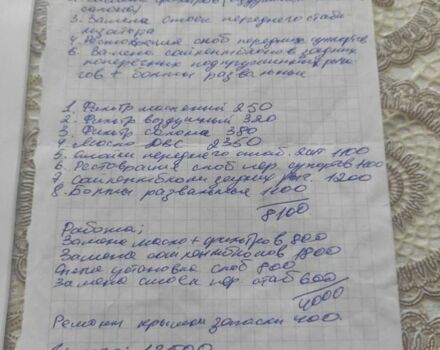 салона)
3. Замена стоек переднего стаби
лизатора
4 Реставрация скоб передних суппортов
6. Замена сайлентблоков в задних
поперечных подпружинных рыча
гов + болты развальные
1. Фильтр масляный 250
2. Фильтр воздушный 320
3. Фильтр салона 380
4. Масло ДВС 2350
5. Стойки переднего стаб. 2шт 1100
6. Реставрация скоб пер. суппортов
7. Сайлентблоки задних рыч. 1200
8. Болты развальные
8100
Работа;
Замена масла + фильтров 800
Замена сайлентблоков 1800
установка скоб 800
Замена стоек пер. стаб 600
4000
Ремонт крышки запаски 400.